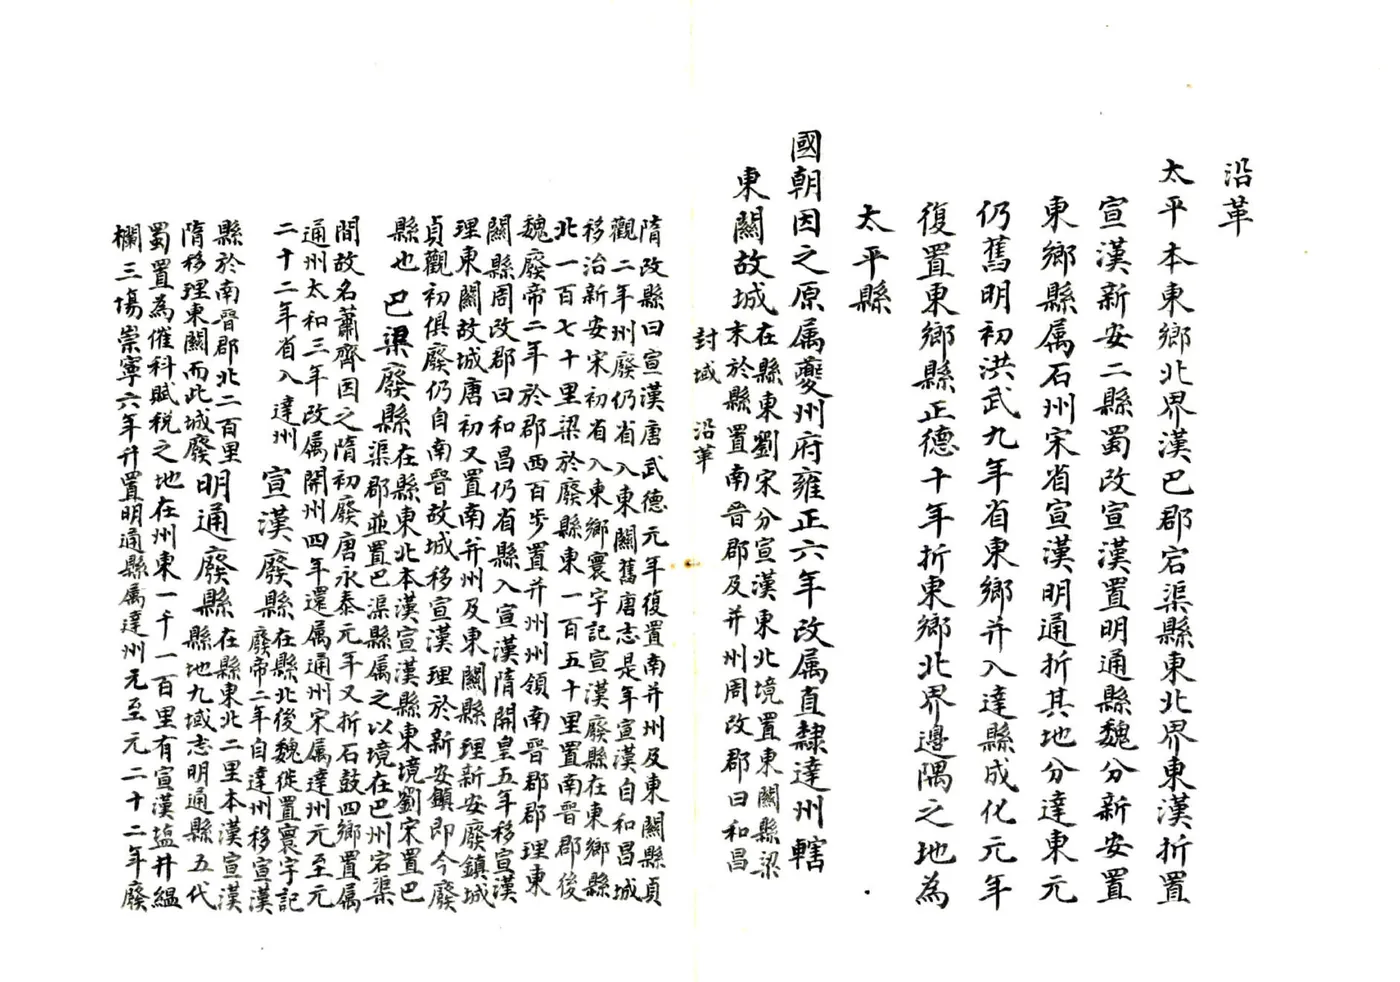 沿革
太平本東鄉北界漢巴郡宕渠縣東北界東漢折置
宣漢新安二縣蜀改宣漢置明通縣魏分新安置
東鄉縣属石州宋省宣漢明通折其地分達東元
仍舊明初洪武九年省東鄉并入達縣成化元年
復置東鄉縣正德十年折東鄉北界邊隅之地為
太平縣
國朝因之原属夔州府雍正六年改属直隸達州轄
東關故城
在縣東劉宋分宣漢東北境置東關縣梁
末於縣置南晉郡及并州周改郡曰和昌
封域 沿革
隋改縣曰宣漢唐武德元年復置南并州及東關縣貞
觀二年州廢仍省入東關舊唐志是年宣漢自和昌城
移治新安宋初省入東鄉寰宇記宣漢廢縣在東鄉縣
北一百七十里梁於廢縣東一百五十里置南晉郡後
魏廢帝二年於郡西百步置并州州領南晉郡郡理東
關縣周改郡曰和昌仍省縣入宣漢隋開皇五年移宣漢
理東關故城唐初又置南并州及東關縣理新安廢鎮城
貞觀初俱廢仍自南晉故城移宣漢理於新安鎮即今廢
縣也 巴渠廢縣
在縣東北本漢宣漢縣東境劉宋置巴
渠郡並置巴渠縣属之以境在巴州宕渠
間故名蕭齊因之隋初廢唐永泰元年又折石鼓四鄉置属
通州太和三年改属開州四年還属通州宋属達州元至元
二十二年省入達州 宣漢廢縣
在縣北後魏徙置寰宇記
廢帝二年自達州移宣漢
縣於南晉郡北二百里
隋移理東關而此城廢 明通廢縣
在縣東北二里本漢宣漢
縣地九域志明通縣五代
蜀置為催科賦税之地在州東一千一百里有宣漢塩井緼
欄三場崇寧六年升置明通縣属達州元至元二十二年廢